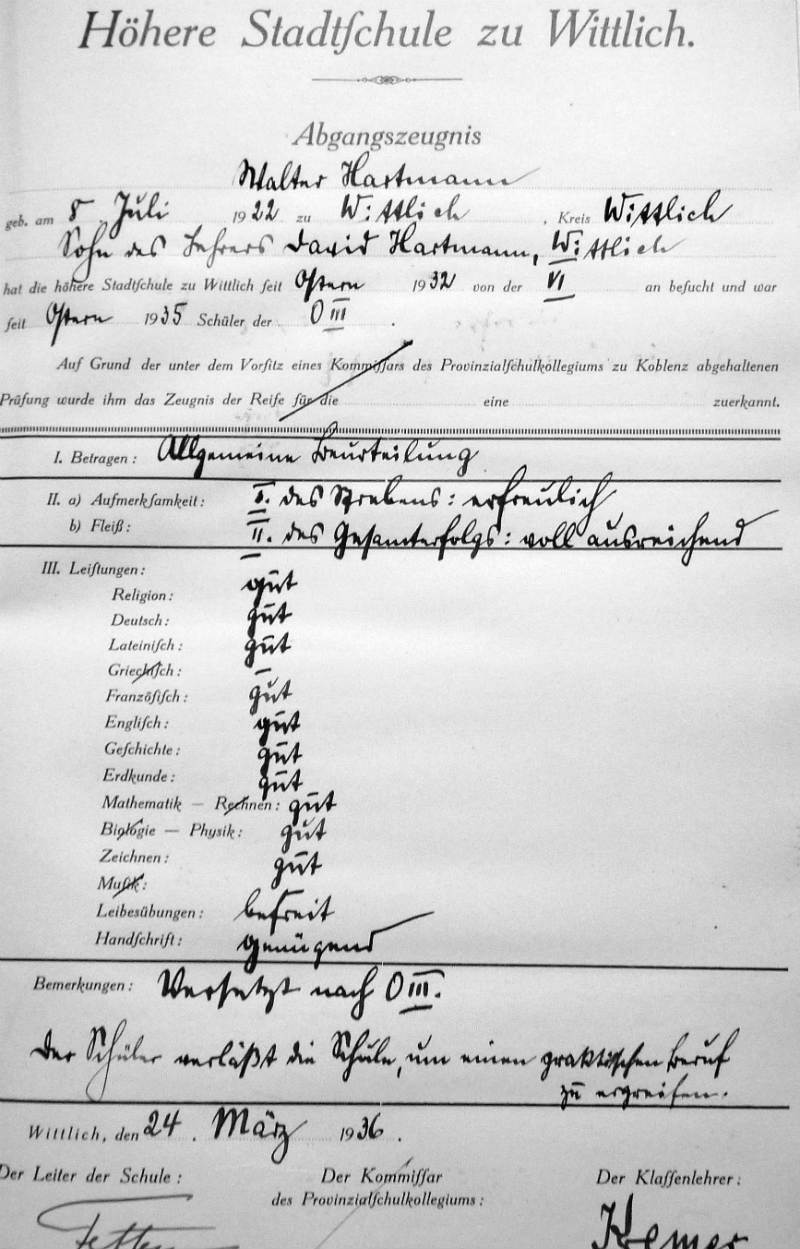 Höhere Stadtſchule zu Wittlich.
Abgangszeugnis
Walter Hartmann
geb. am 8 Juli 1922 zu Wittlich, Kreis Wittlich
Sohn des Lehrers David Hartmann, Wittlich
hat die höhere Stadtſchule zu Wittlich ſeit Oſtern 1932 von der VI an beſucht und war
ſeit Oſtern 1935 Schüler der O III.
Auf Grund der unter dem Vorſitz eines Kommiſſars des Provinzialſchulkollegiums zu Koblenz abgehaltenen
Prüfung wurde ihm das Zeugnis der Reife für die eine zuerkannt.
I. Betragen: Allgemeine Beurteilung
II. a) Aufmerkſamkeit: I. des Strebens: erfreulich
b) Fleiß: II. des Geſamterfolgs: voll ausreichend
III. Leiſtungen:
Religion: gut
Deutsch: gut
Lateiniſch: gut
Griechiſch: –
Franzöſiſch: gut
Engliſch: gut
Geſchichte: gut
Erdkunde: gut
Mathematik — Rechnen: gut
Biologie — Physik: gut
Zeichnen: gut
Muſik:
Leibesübungen: befreit
Handſchrift: genügend
Bemerkungen: Verſetzt nach O III.
Der Schüler verläßt die Schule, um einen praktiſchen Beruf
zu ergreifen.
Wittlich, den 24. März 1936.
Der Leiter der Schule: Der Kommiſſar Der Klaſſenlehrer:
des Provinzialſchulkollegiums: